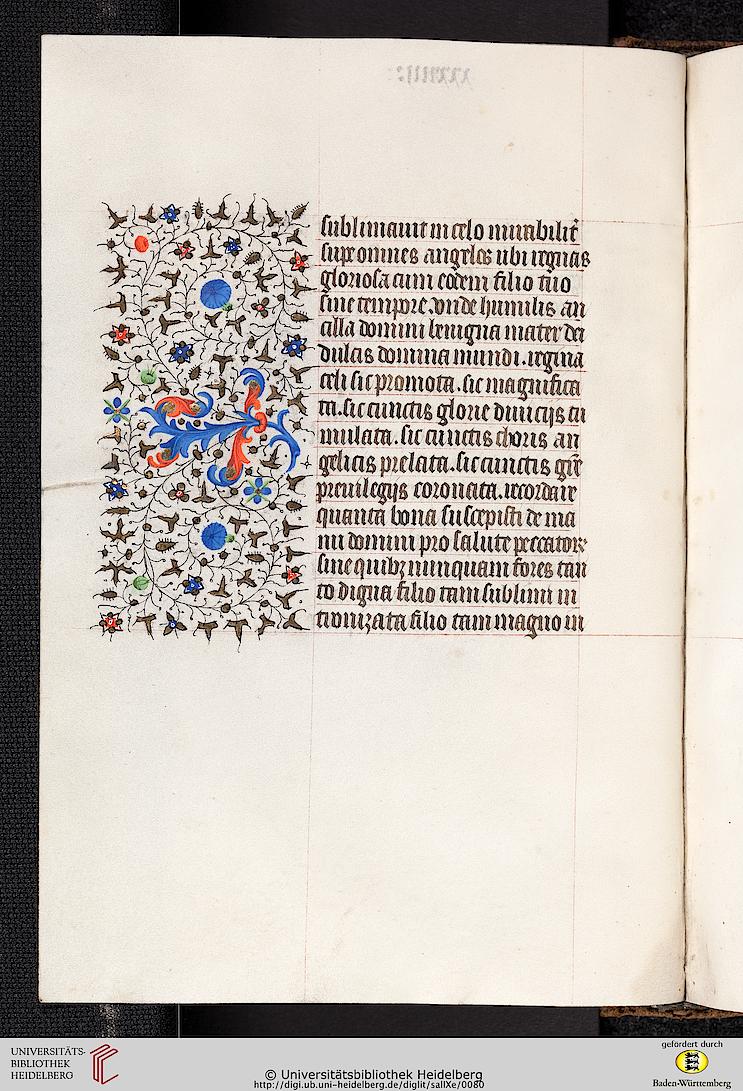 xxxiiii:
sublimauit in celo mirabilit̉
supe omnes angelos ubi regnas
gloriosa cum eodem filio tuo
sine tempore. vnde humilis an
cilla domini benigna mater dei
dulcis domina mundi. regina
celi sic promota. sic magnifica
ta. sic cunctis glorie diuicijs cu
mulata. sic cunctis choris an
gelicis prelata. sic cunctis
preuilegijs coronata. recordare
quanta bona suscepisti de ma
nu domini pro salute peccator
sine quibꝫ nunquam fores tan
to digna filio tam sublimi in
tronizata filio tam magno in
UNIVERSITÄTS-
BIBLIOTHEK
HEIDELBERG
© Universitätsbibliothek Heidelberg
http://digi.ub.uni-heidelberg.de/diglit/salIXe/0080
gefördert durch
Baden-Württemberg